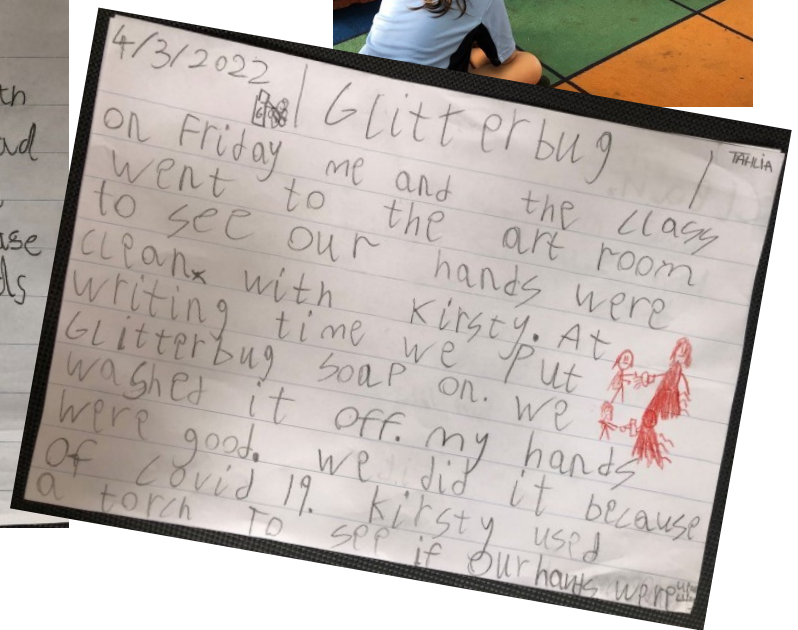 th
ad
ase
ds
4/3/2022
Glitterbug
TAHLIA
on Friday me and the class
went to the art room
to see our hands were
clean with Kirsty. At
writing time we put
Glitterbug soap on. we
washed it off. my hands
were good. we did it because
of covid 19. Kirsty used
a torch To see if our hands were